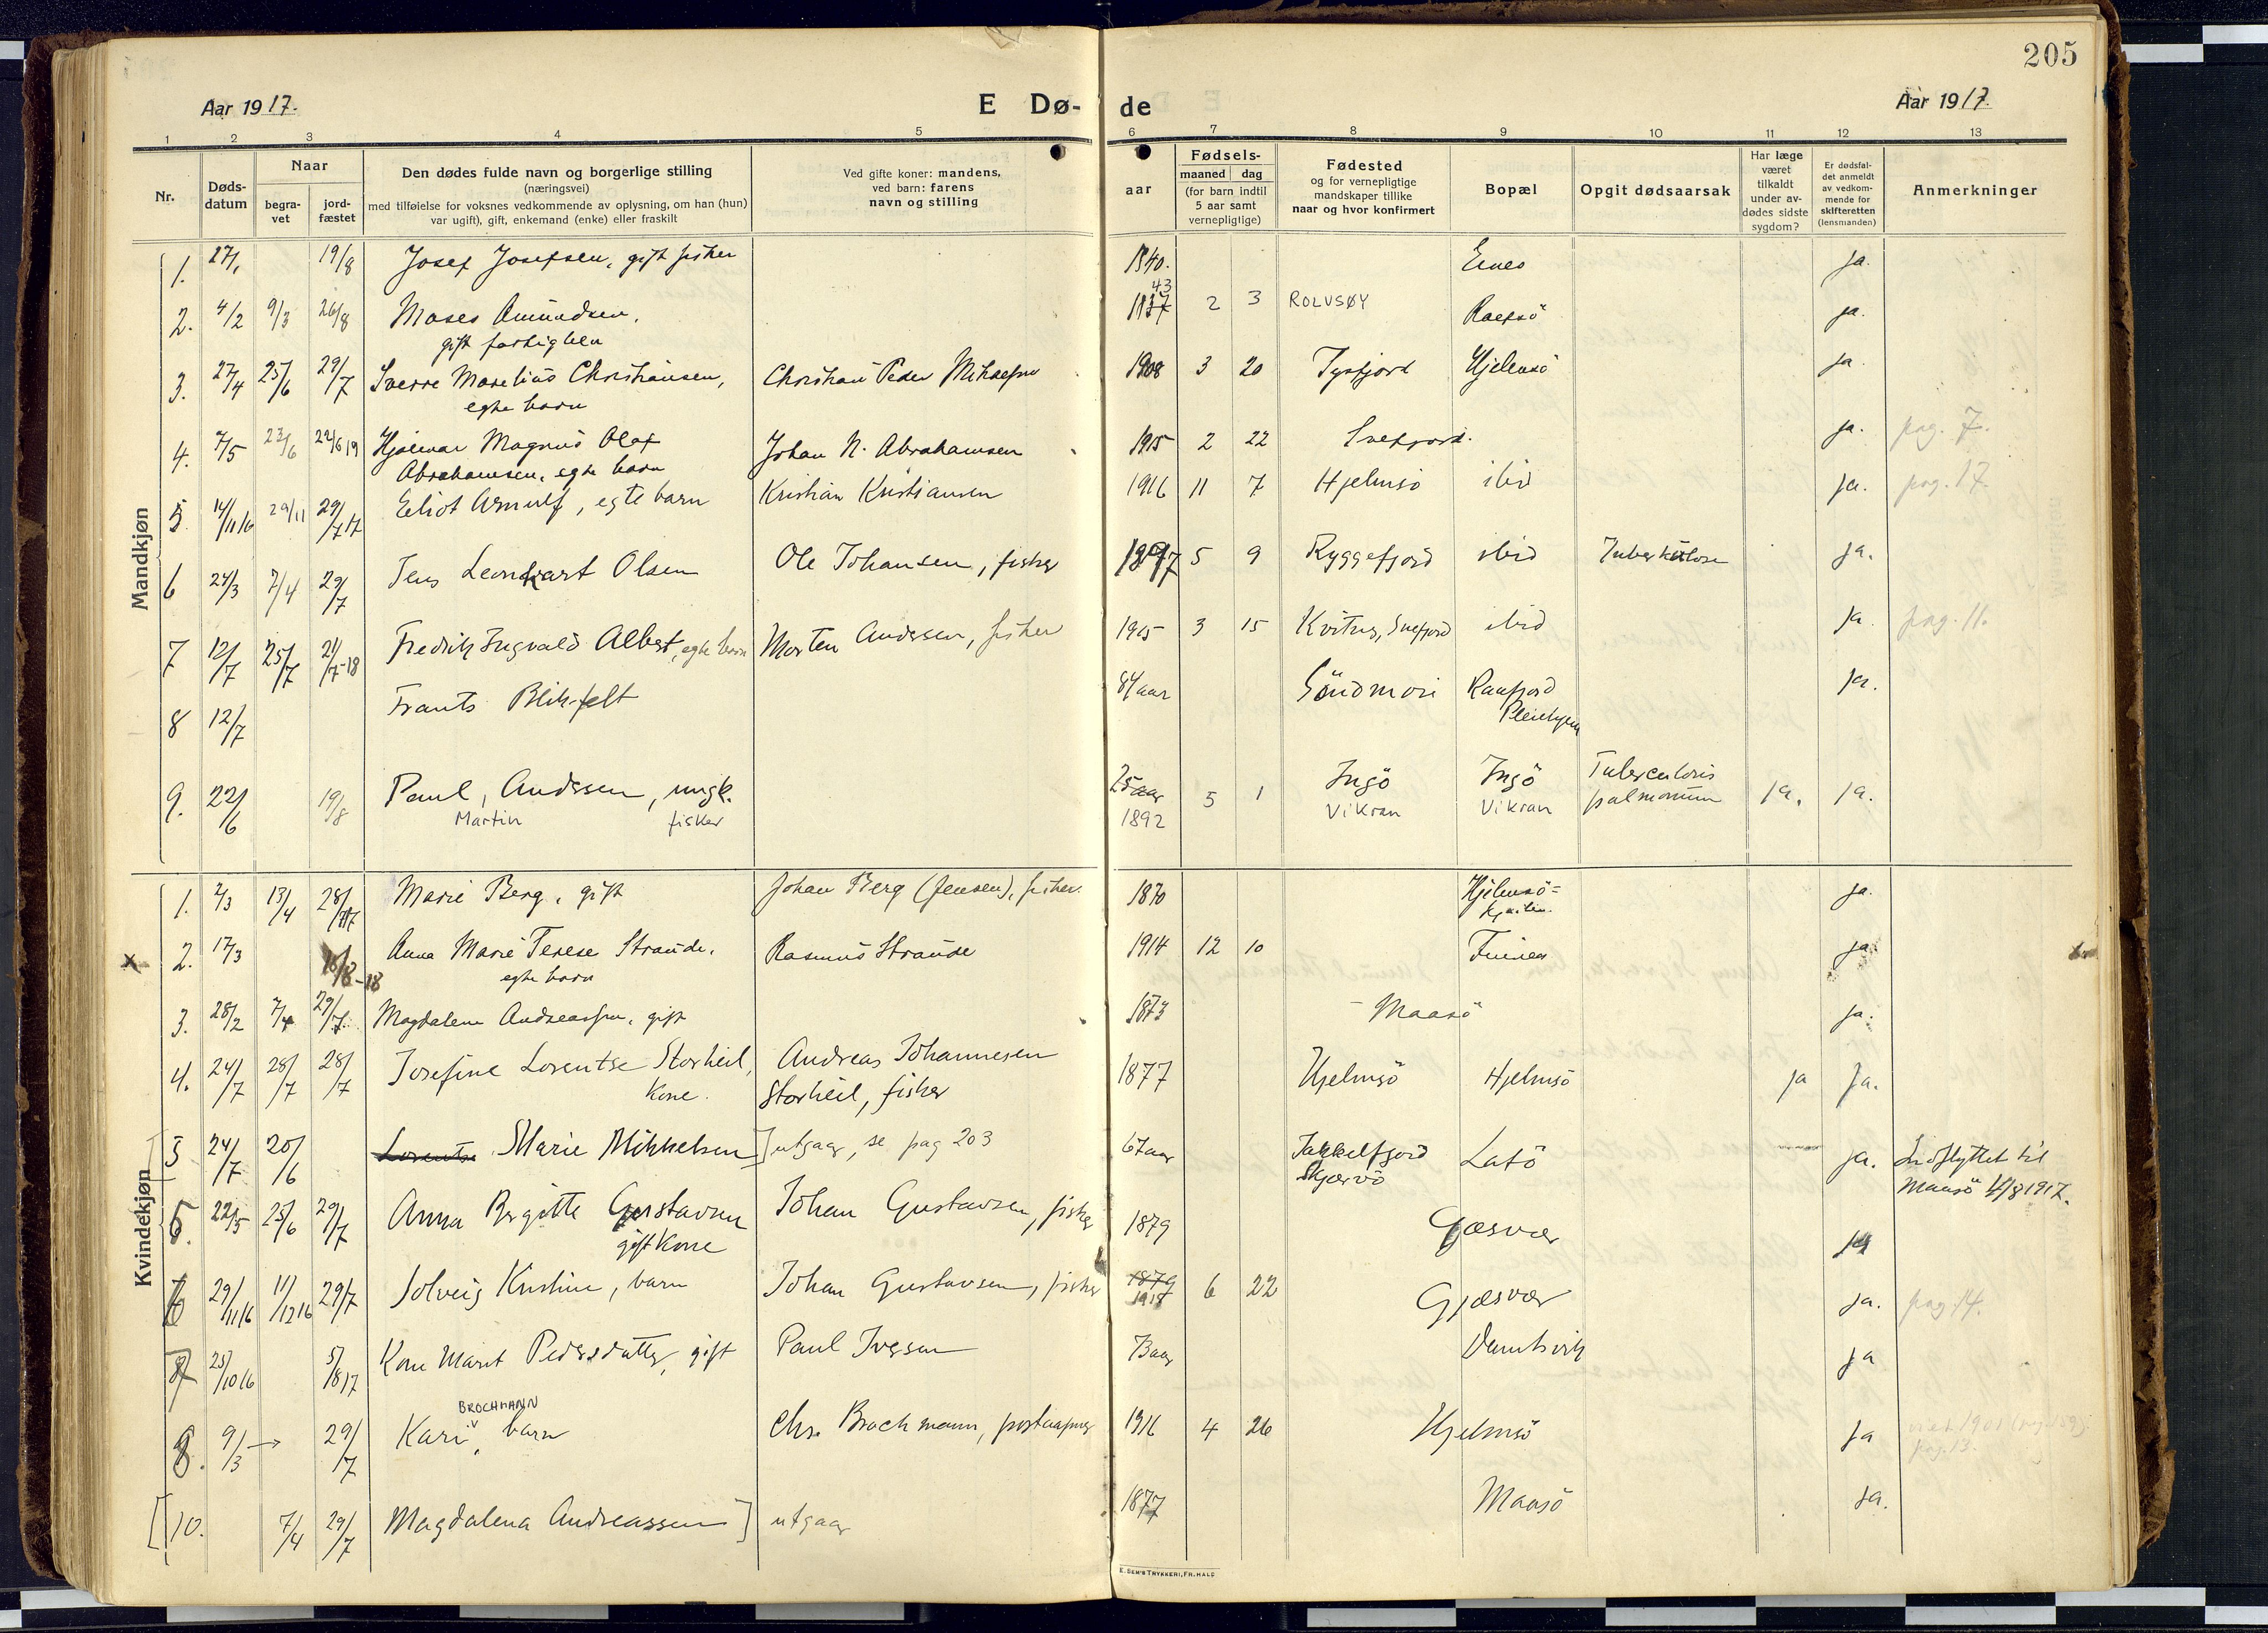 205
Aar 1917.
E Dø-
de
Aar 1917.
1 2 3 4 5 6 7 8 9 10 11 12 13
Nr.
Døds-
datum
Naar
begra-
vet
jord-
fæstet
Den dødes fulde navn og borgerlige stilling
(næringsvei)
med tilføielse for voksnes vedkommende av oplysning, om han (hun)
var ugift), gift, enkemand (enke) eller fraskilt
Ved gifte koner: mandens,
ved barn: farens
navn og stilling
aar
Fødsels-
maaned dag
(for barn indtil
5 aar samt
vernepligtige)
Fødested
og for vernepligtige
mandskaper tillike
naar og hvor konfirmert
Bopæl
Opgit dødsaarsak
Har læge
været
tilkaldt
under av-
dødes sidste
sygdom?
Er dødsfal-
det anmeldt
av vedkom-
mende for
skifteretten
(lensmanden)
Anmerkninger
Mandkjøn
1. 27/1 19/8 Josef Josefsen, gift fisker 1840. ja.
43
2. 4/2 9/3 26/8 Moses Amundsen, 1837 2 3 ROLVSØY ja.
gift fattiglem
3. 27/4 25/6 29/7 Sverre Marelius Christiansen, 1908 3 20 Tysfjord Hjelmsö ja.
egte barn
4. 7/5 23/6 22/6 19 Hjalmar Magnus Olaf Johan N. Abrahamsen 1915 2 22 Snefjord. ja. pag. 7.
Abrahamsen, egte barn
5. 14/11 16 29/11 29/7 17 Eliot Arnulf, egte barn Kristian Kristiansen 1916 11 7 Hjelmsö ibid ja. pag. 17.
6 24/3 7/4 29/7 Jens Leonhart Olsen Ole Johansen, fisker 5 9 Ryggefjord ibid Tuberkulose ja.
7 12/7 25/7 21/7-18 Fredrik Ingvald Albert, egte barn Morten Andersen, fisker 1915 3 15 Kvitnes, Snefjord ibid ja. pag. 11.
8 12/7 Frants Blikfelt 84 aar Söndmöri ja.
Pleiehjem
9. 22/6 19/8 Paul, Andersen, ungk. 25 aar 5 1 Ingö Ingö Tuberculosis ja. ja.
Martin fisker 1892 Vikran Vikran pulmonum
Kvindekjøn
1. 2/3 13/4 28/7 17 Marie Berg, gift Johan Berg (Jensen), fisker. 1870 Hjelmsö= ja.
x 2. 17/3 16/8-18 Anna Marie Terese Strande. Rasmus Strande 1914 12 10 ja.
egte barn
3. 28/2 7/4 29/7 Magdalena Andreassen, gift 1873 Maasö ja.
4. 24/7 28/7 28/7 Josefine Lorentse Storheil, Andreas Johannesen 1877 Hjelmsö Hjelmsö ja ja.
kone. Storheil, fisker
5 24/7 20/6 Lorentse Marie Mikkelsen] utgaar, se pag 203 67 aar Jøkkelfjord Latö ja. Indflyttet til
Skjervö Maasö 4/8 1917.
6. 22/5 25/6 29/7 Anna Birgitte Gustavsen Johan Gustavsen, fisker 1879 Gjæsvær ja
gift kone
6 29/11 16 11/12 16 29/7 Solveig Kristine, barn Johan Gustavsen, fisker 1879 6 22 Gjæsvær ja. pag 14.
7 25/10 16 5/8 17 Kone Marit Pedersdatter, gift Paul Iversen 73 aar ja
BROCHMANN
8. 9/3 → 29/7 Kari, barn Chr. Brochmann, postaapner 1916 4 26 Hjelmsö ja
[10. 7/4 29/7 Magdalena Andreassen] utgaar 1877 Maasö ja.
E. SEM'S TRYKKERI, FR.HALD